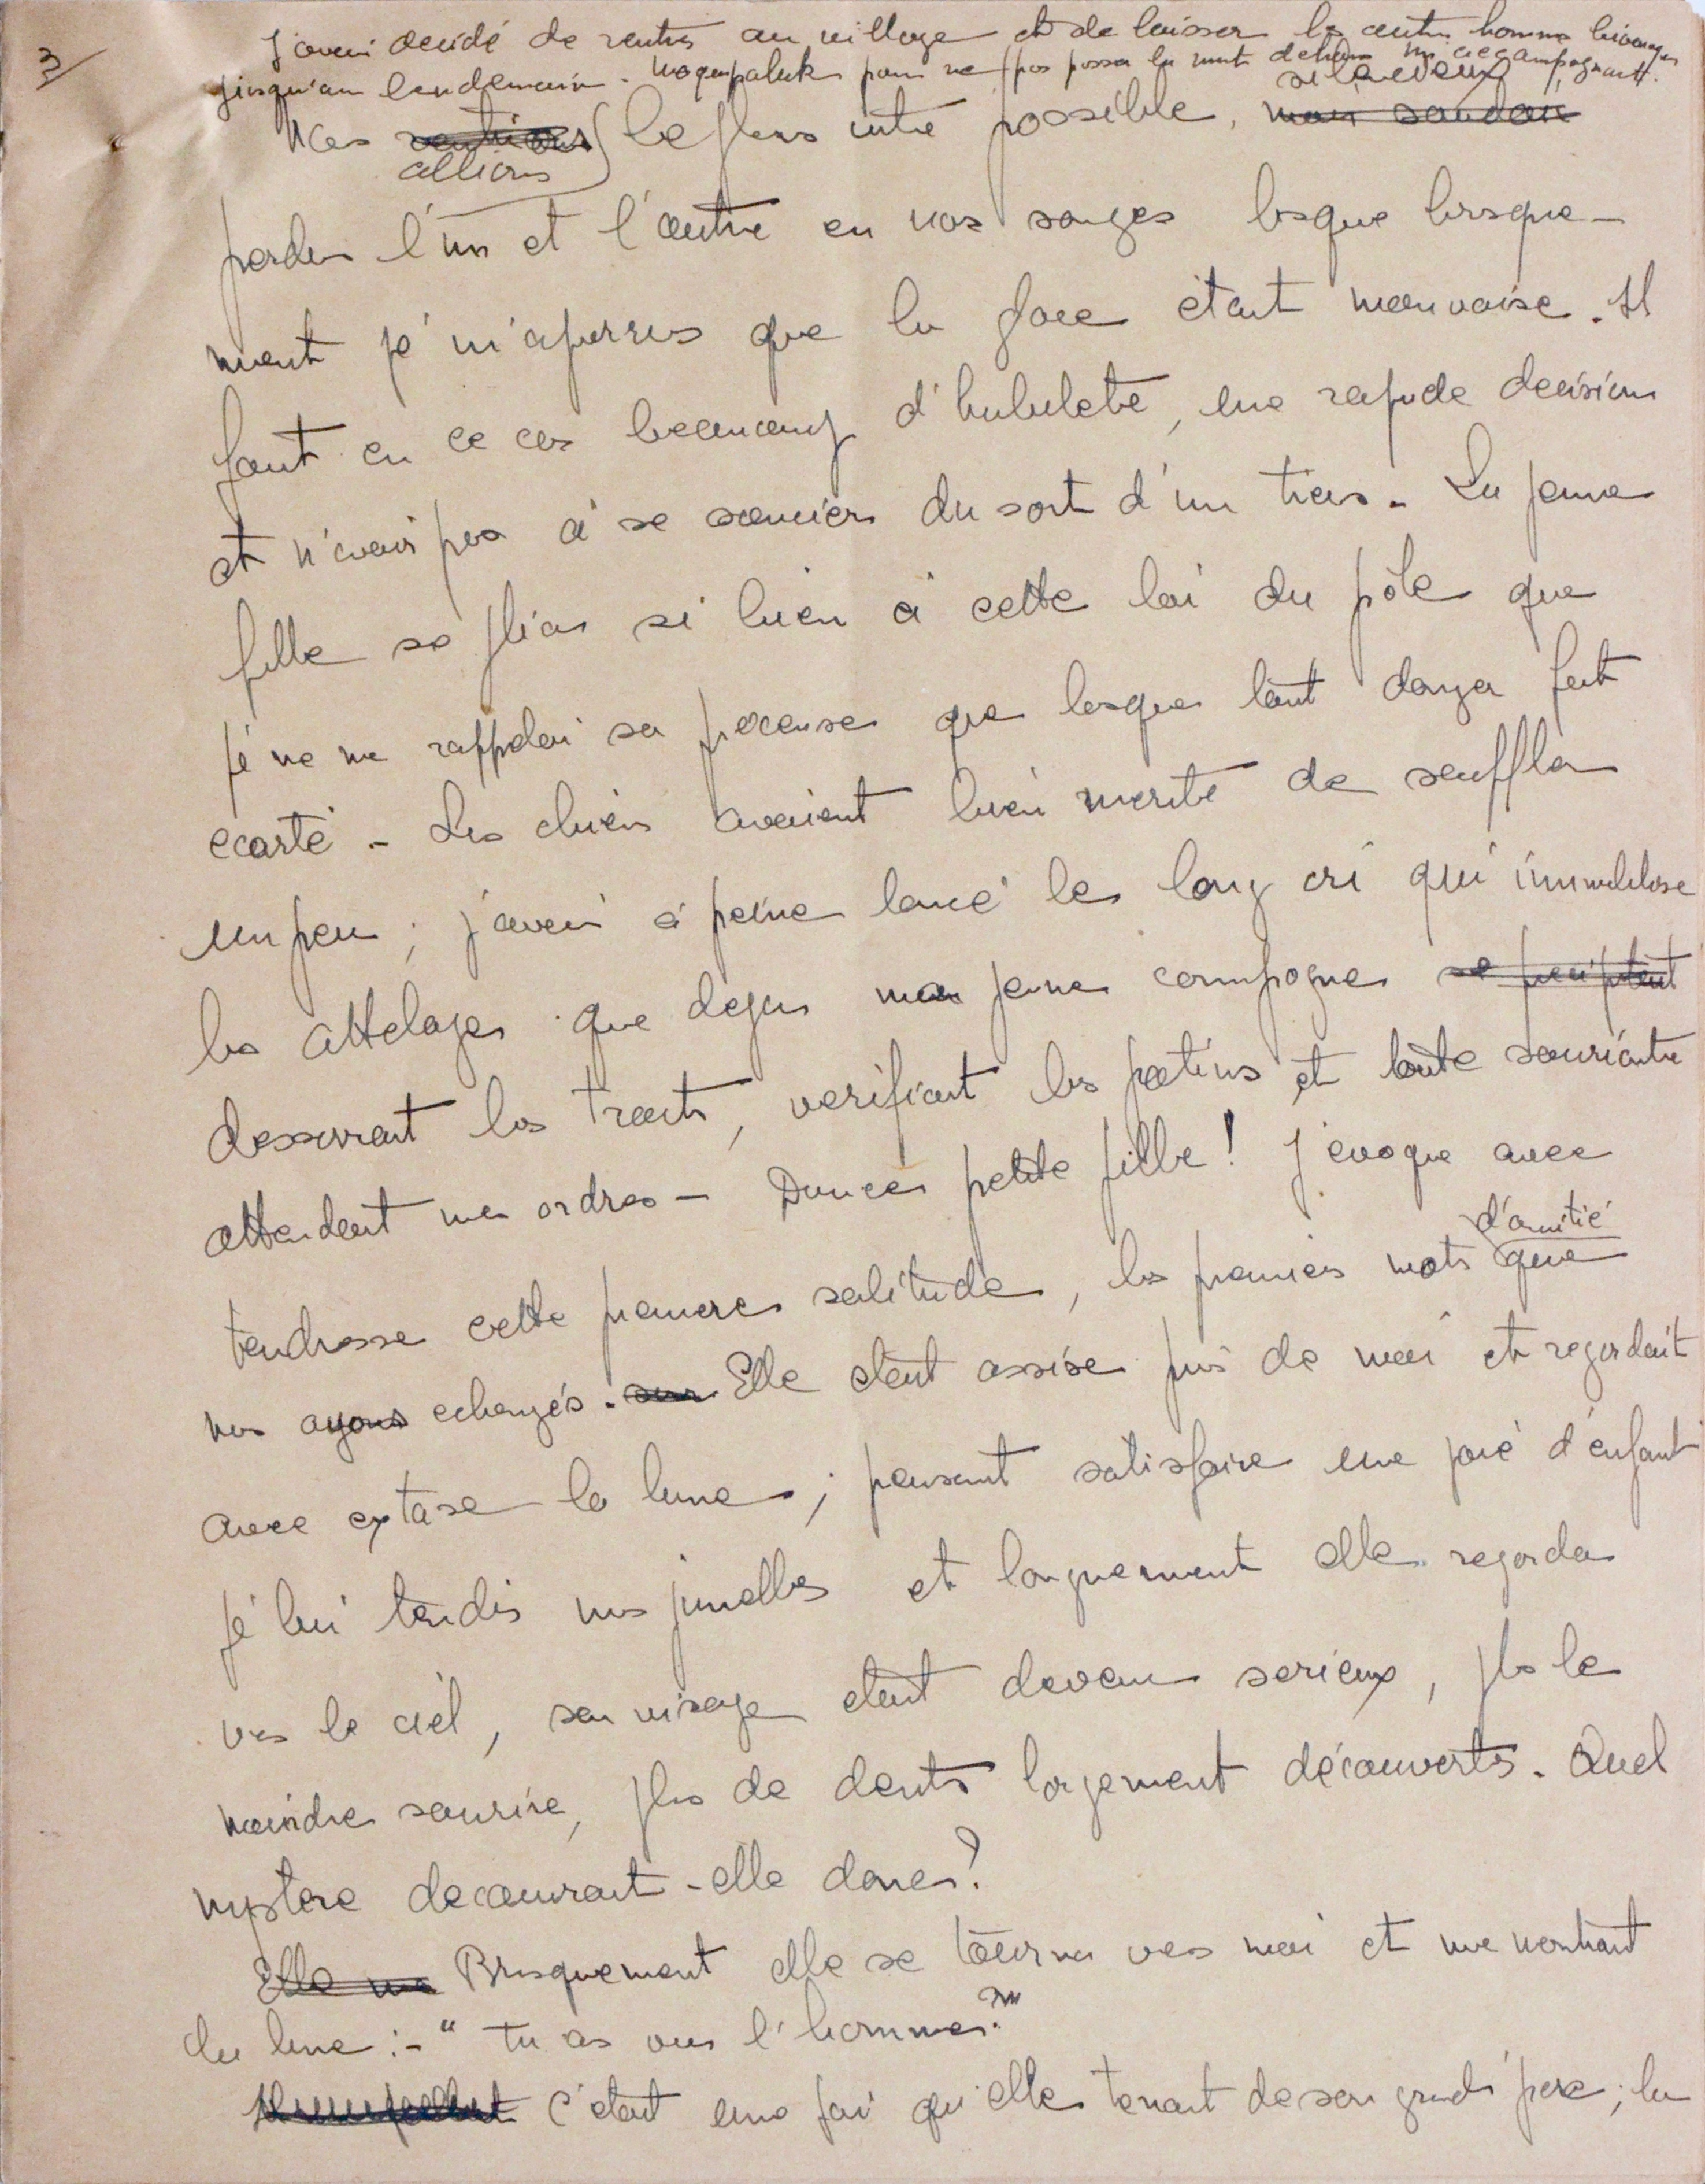 3/
J'avais décidé de rentrer au village et de laisser les autres hommes bivouaquer
jusqu'au lendemain. pour ne pas passer la nuit dehors m'accompagnait.
silencieux
Nous rentrions le plus vite possible, mais soudain
allions
perdus l'un et l'autre en nos songes lorsque brusque-
ment je m'aperçus que la glace était mauvaise. Il
faut en ce cas beaucoup d'habileté, une rapide decision
et n'avoir pas à se soucier du sort d'un tiers. La jeune
fille se plia si bien à cette loi du pôle que
je ne me rappelai sa présence que lorsque tout danger fut
ecarté - Les chiens avaient bien merité de souffler
un peu ; j'avais à peine lancé le long cri qui immobilise
les attelages que dejà ma jeune compagne se precipitait
desserrait les traits, verifiait les patins et toute souriante
attendait mes ordres - Douce petite fille ! J'evoque avec
d'amitié
tendresse cette premiere solitude, les premiers mots que
nous ayons echangés. Elle etait assise près de moi et regardait
avec extase la lune ; pensant satisfaire une joie d'enfant
je lui tendis mes jumelles et longuement elle regarda
vers le ciel, son visage etait devenu serieux, plus le
moindre sourire, plus de dents largement découvertes. Quel
mystere decouvrait-elle donc ?
Elle me Brusquement elle se tourna vers moi et me montrant
la lune :- " tu as vu l'homme ? "
C'etait une foi qu'elle tenait de son grand pere ; la